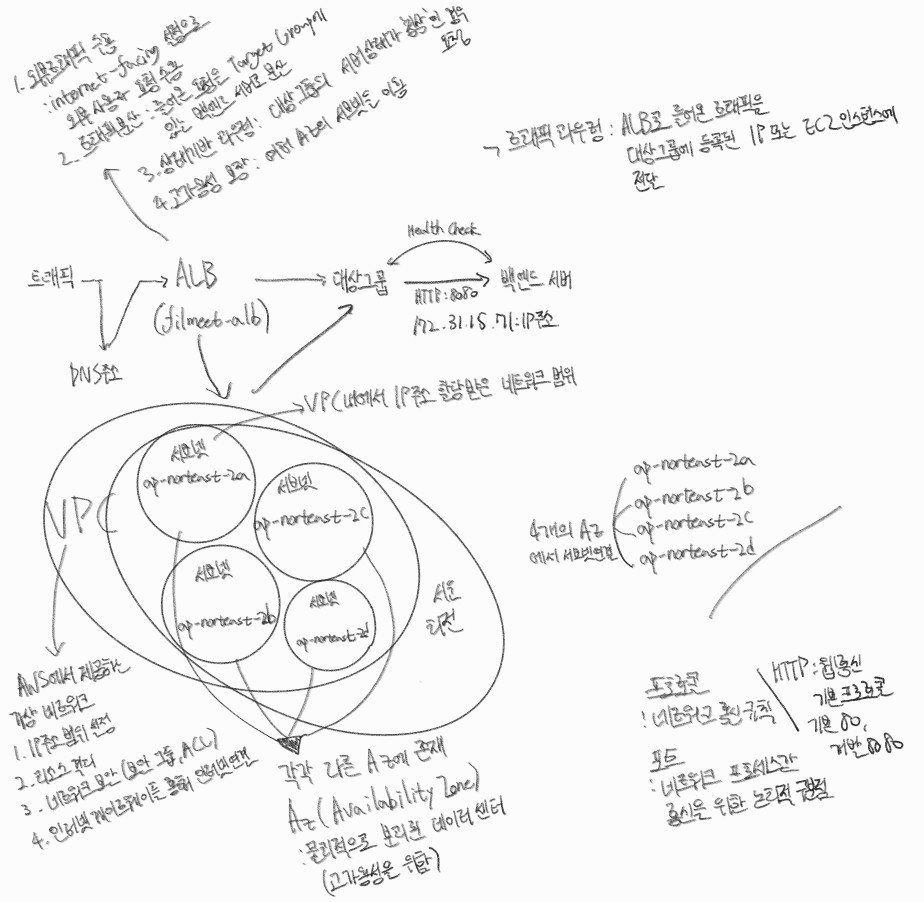 1. 외부트래픽 수용
: internet-facing 설정으로
외부 사용자 요청 수용
2. 트래픽분산 : 들어온 요청은 Target Group에
있는 백엔드 서버로 분산
3. 상태기반 라우팅 : 대상그룹의 서버상태가 '정상'인 경우
요청
4. 고가용성 보장 : 여러 AZ의 서브넷들 이용
트래픽 라우팅 : ALB로 들어온 트래픽을
대상그룹에 등록된 IP 또는 EC2 인스턴스에
전달
Health Check
트래픽
ALB
(filmeet-alb)
대상그룹
HTTP : 8080
172.31.15.71 : IP주소
백엔드 서버
DNS주소
VPC내에서 IP주소 할당받은 네트워크 범위
VPC
서브넷
ap-norteast-2a
서브넷
ap-norteast-2c
서브넷
ap-norteast-2b
서브넷
ap-norteast-2d
서울
리전
4개의 AZ
에서 서브넷연결
ap-norteast-2a
ap-norteast-2b
ap-norteast-2c
ap-norteast-2d
AWS에서 제공하는
가상 네트워크
1. IP주소 범위 설정
2. 리소스 격리
3. 네트워크 보안 (보안 그룹, ACL)
4. 인터넷 게이트웨이를 통해 인터넷연결
각각 다른 AZ에 존재
AZ (Availability Zone)
: 물리적으로 분리된 데이터 센터
(고가용성을 위함)
프로토콜
: 네트워크 통신 규칙
포트
: 네트워크 프로세스간
통신을 위한 논리적 접점
HTTP : 웹통신
기본 프로토콜
기본 80,
개발 8080